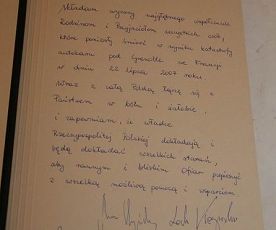 Składam wyrazy najgłębszego współczucia
Rodzinom i Przyjaciołom wszystkich osób,
które poniosły śmierć w wyniku katastrofy
autokaru pod Grenoble we Francji
w dniu 22 lipca 2007 roku
Wraz z całą Polską łączę się z
Państwem w bólu i żałobie,
i zapewniam, że władze
Rzeczypospolitej Polskiej dokładają i
będą dokładać wszelkich starań,
aby rannym i bliskim ofiar pospieszyć
z wszelką możliwą pomocą i wsparciem
Lech Kaczyński